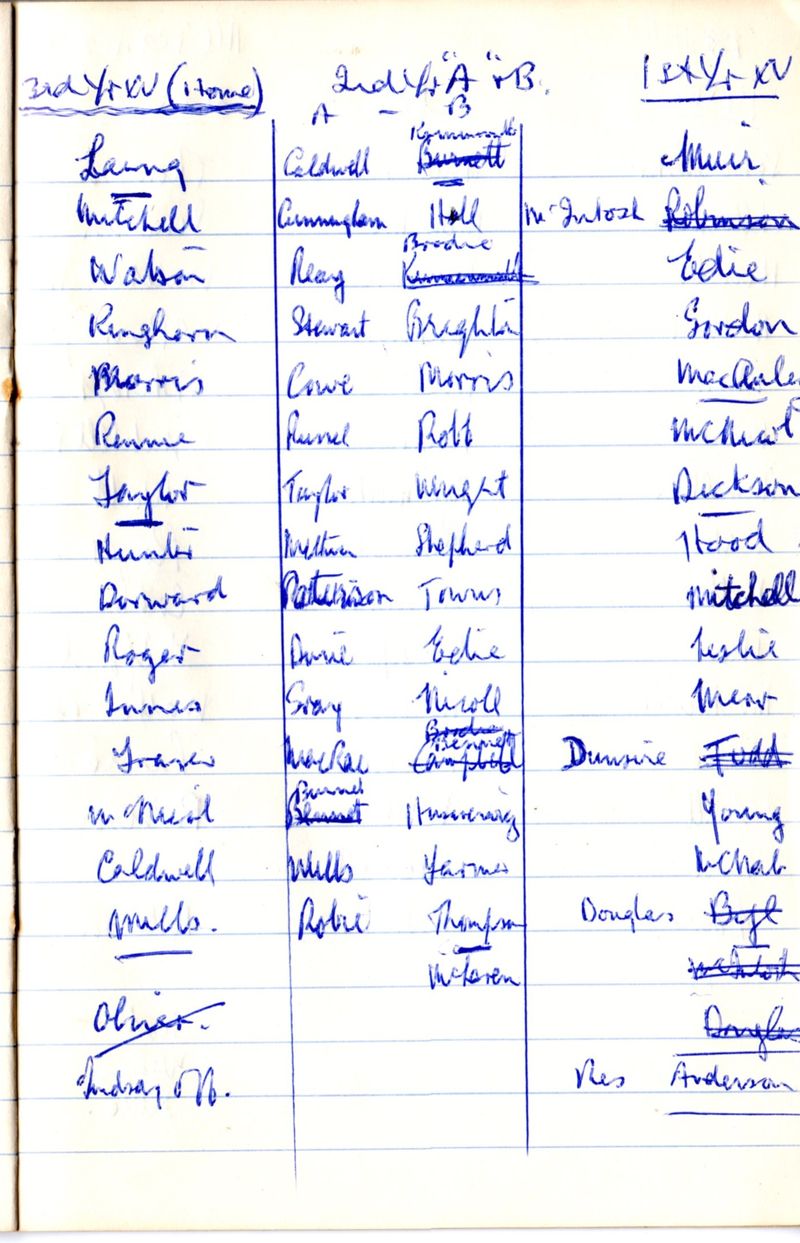 3rd Yr XV (Home) 2nd Yr "A" + B. 1st Yr XV
A - B
Laing Caldwell Burnett Muir
Mitchell Cunningham Hall McIntosh Robinson
Brodie
Watson Reay Edie
Kinghorn Stewart Breighton Gordon
Morris Cowe Morris
Rennie Russel Robb McNicol
Taylor Taylor Wright Dickson
Hunter Shepherd Hood
Dorward Patterson Towns Mitchell
Roger Durie Edie Leslie
Innes Gray Nicoll
Brodie
Bennett
Fraser MacRae Campbell Dunsire Todd
Burnet
McNeil Bennet Young
Caldwell Mills Farmer McNab
Mills. Robie Thompson Douglas
McLaren McIntosh
Olivier. Douglas
Lindsay off. Res Anderson